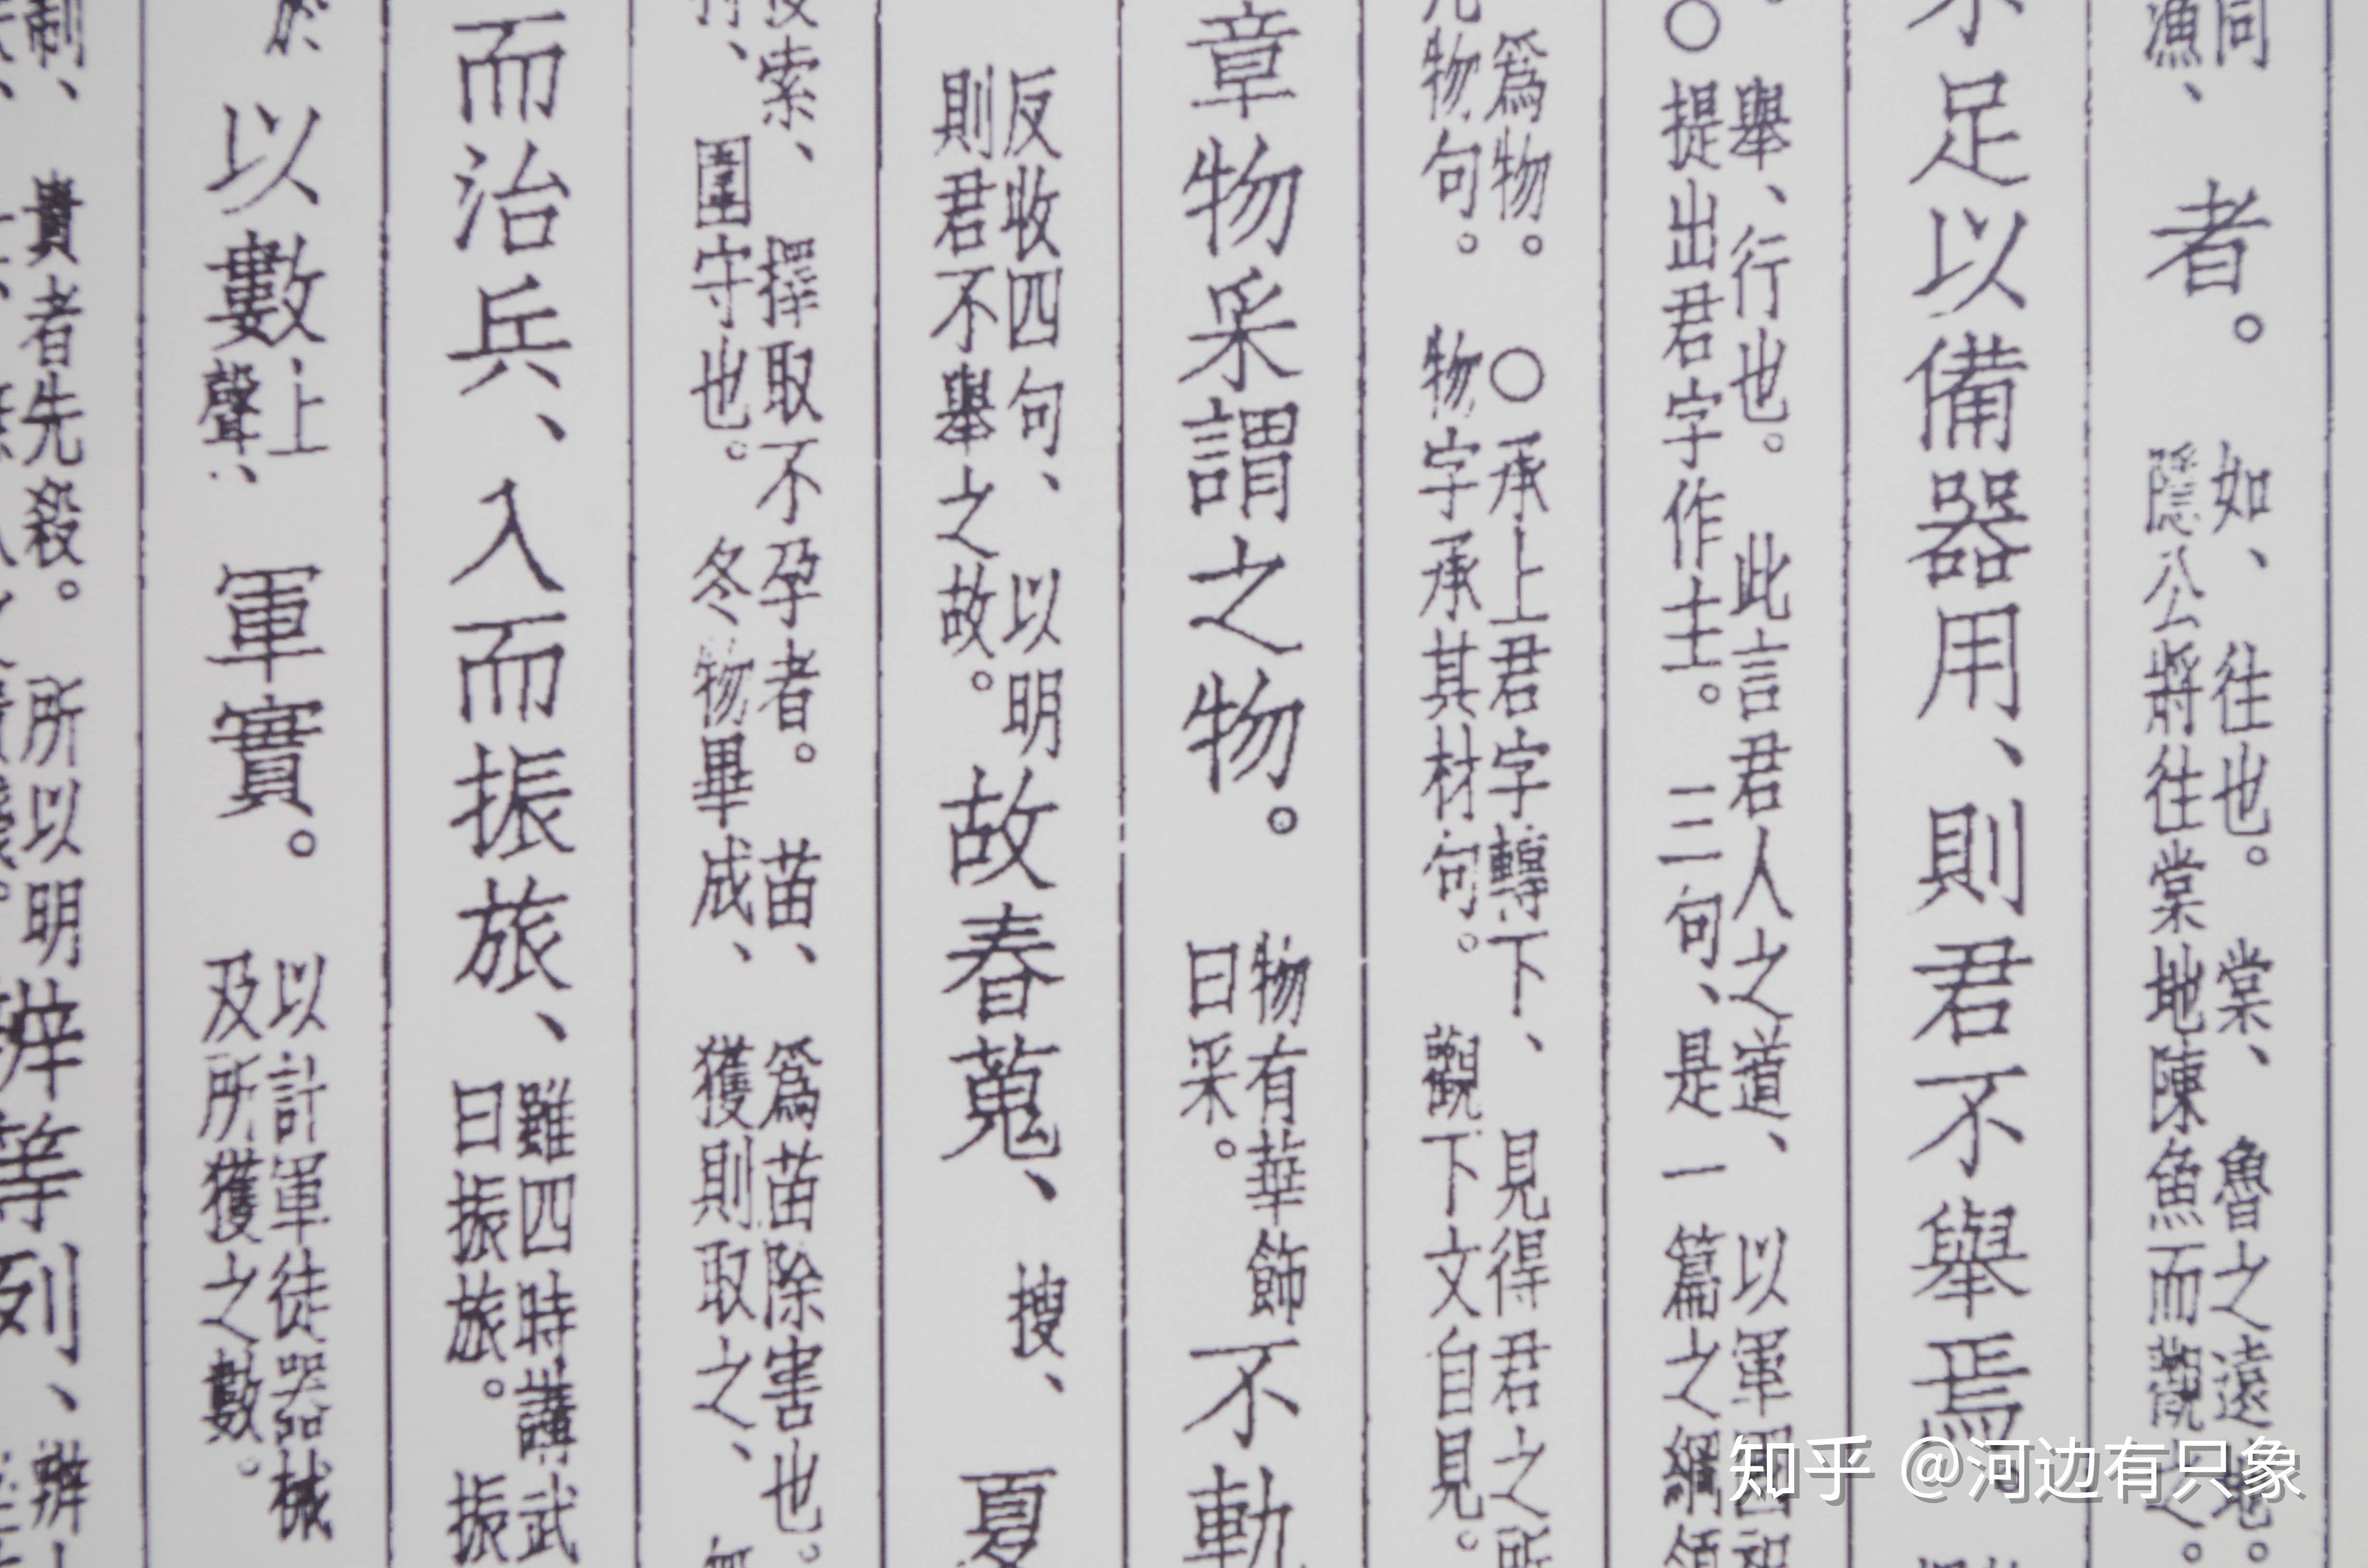 同
漁、
者。
如、往也。棠、魯之遠地。
隱公將往棠地陳魚而觀之。
足以備器用、則君不舉焉
舉、行也。此言君人之道、以軍國
○提出君字作主。三句、是一篇之綱領
爲物。○承上君字轉下、見得君之所
物句。物字承其材句。觀下文自見。
章物采謂之物。
物有華飾
曰采。
不軌
反收四句、以明
則君不舉之故。
故春蒐、
搜、
夏
搜索、擇取不孕者。苗、爲苗除害也。
圍守也。冬物畢成、獲則取之、
而治兵、入而振旅、
雖四時講武
曰振旅。振
於
以數
上
聲、
軍實。
以計軍徒器械
及所獲之數。
制、貴者先殺。所以明
等列、
辨
知乎 @河边有只象